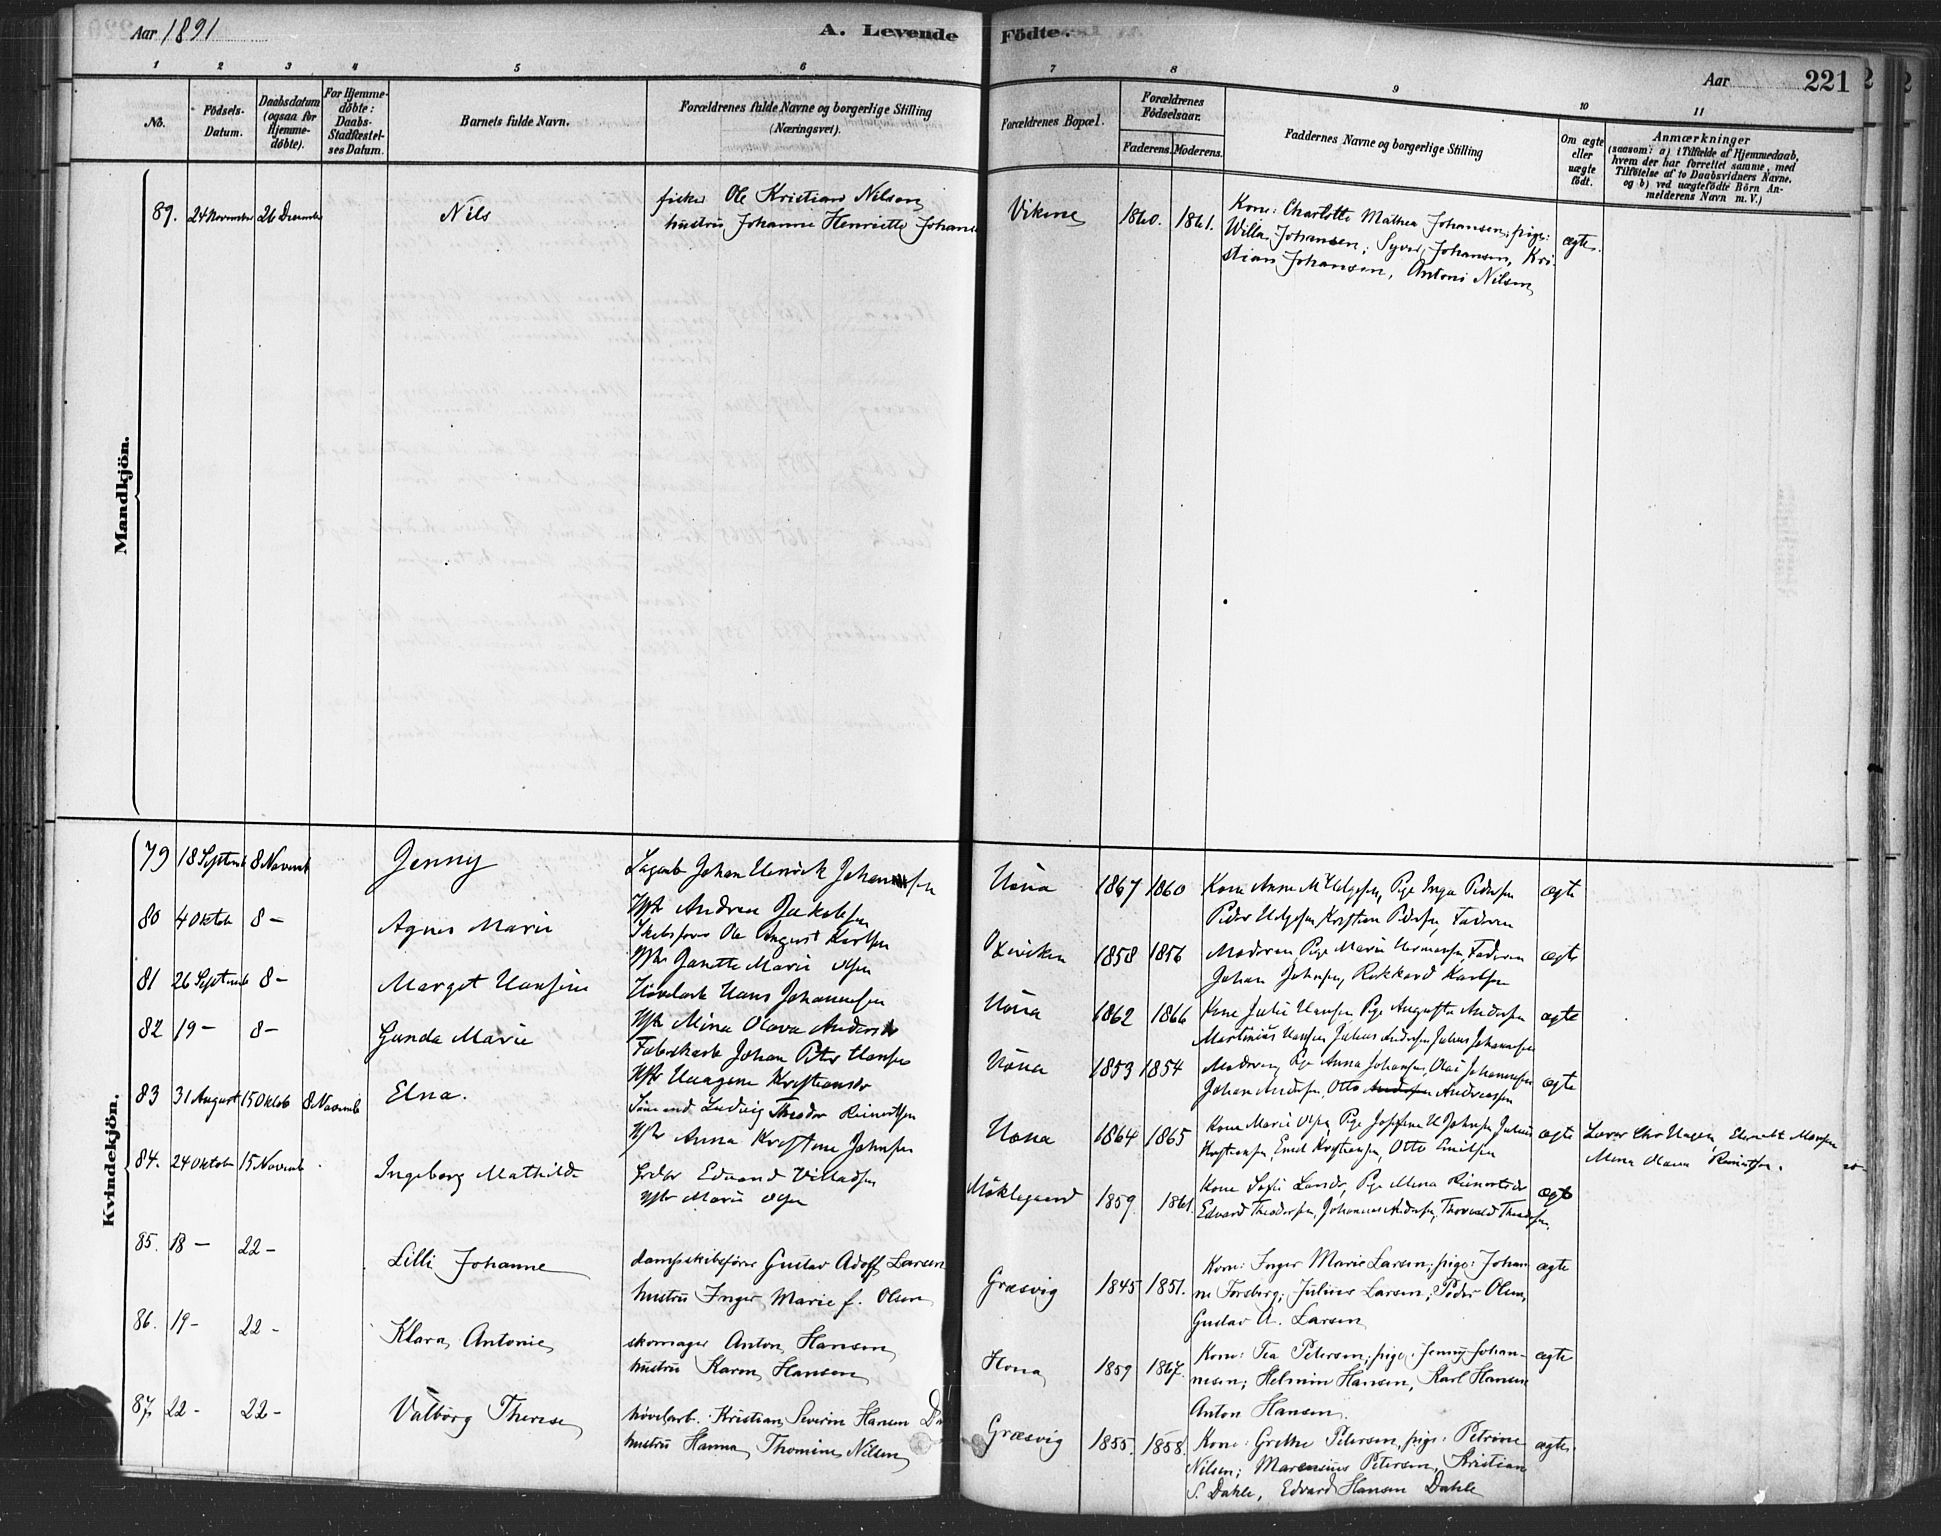 Aar 1891
A. Levende Födte.
Aar 221
1 2 3 4 5 6 7 8 9 10 11
No.
Födsels-Datum.
Daabsdatum (ogsaa for Hjemme-döbte).
For Hjemme-döbte: Daabs-Stadfæstel-ses Datum.
Barnets fulde Navn.
Forældrenes fulde Navne og borgerlige Stilling (Næringsvei).
Forældrenes Bopæl.
Forældrenes Födselsaar.
Faderens. Moderens.
Faddernes Navne og borgerlige Stilling
Om ægte eller uægte födt.
Anmærkninger
(saasom: a) i Tilfælde af Hjemmedaab,
hvem der har forrettet samme, med
Tilföielse af to Daabsvidners Navne,
og b) ved uægtefödte Börn An-
melderens Navn m. V.)
Mandkjön.
89. 24 November 26 December Nils
fisker Ole Kristian Nilsen
hustru Johanne Henriette Johans
Vikene 1860. 1861.
Kone: Charlotte Mathea Johansen; pige:
Willa Johansen; Syver Johansen, Kri-
stian Johansen, Antoni Nilsen
ægte.
Kvindekjön.
79 18 Septemb 8 Novemb Jenny
Johan Henrik Johannsen
Hstr Andrea Jakobsen
Höna 1867 1860
Kone Anne M Helgesen, Pige Inga Pedersen
Peder Helgesen, Kristian Pedersen, Faderen
ægte
80 4 Oktob 8 - Agnes Marie
Ole August Karlsen
Hstr Janette Marie Olsen
1858 1856
Moderen, Pige Marie Hermansen, Faderen
Johan Johnsen, Rikkard Karlsen
ægte
81 26 Septemb 8 - Margot Hansine
Hövelarb Hans Johannesen
Hstr Mina Olava Andersdr
Höna 1862 1866
Kone Julie Hansen Pige Augusta Andersen
Martinius Hansen Julius Andersen Julius Johannesen
ægte
82 19 - 8 - Gunda Marie
Fabrikarb Johan Peter Hansen
Hstr Kristiansdr
Höna 1853 1854
Moderen, Pige Anna Johansen, Olai Johannesen
Johan Andersen, Otto Andreassen
ægte
83 31 August 15 Oktob 8 Novemb Elna.
Sömand Ludvig Theodor Reinertsen
Hstr Anna Kristine Johnsen
Höna 1864 1865
Kone Marie Olsen, Pige Josefine H Johnsen Julius
Kristiansen, Emil Kristiansen, Otto Emilsen
ægte
Lærer Chr Hagen
Mina Olava Reinertsen.
84. 24 Oktob 15 Novemb Ingeborg Mathilde
Edvard Villadsen
Hstr Marie Olsen
Möklegaard 1859. 1861.
Kone Sofie Larsdr, Pige Mina Reinertsdr
Edvard Theodorsen, Johannes Andersen, Thorvald Theodorsen
ægte
85. 18 - 22 - Lilli Johanne
dampskibsförer Gustav Adolf Larsen
hustru Inger Marie f. Olsen
Græsvig 1845 1851.
Kone: Inger Marie Larsen; pige: Johan-
ne Forsberg; Julius Larsen; Peder Olsen,
Gustav A. Larsen
ægte
86. 19 - 22 - Klara Antonie
skomager Anton Hansen
hustru Karen Hansen
Höna 1859 1867.
Kone: Tea Petersen; pige: Jenny Johan-
nesen; Helmin Hansen, Karl Hansen
Anton Hansen.
ægte
87. 22 - 22 - Valborg Therese
hövelarb. Kristian Severin Hansen Da
hustru Hanna Thomine Nilsen
Græsvig 1855. 1858.
Kone: Grethe Petersen, pige: Petrine
Nilsen; Marensius Petersen, Kristian
S. Dahle, Edvard Hansen Dahle
ægte.